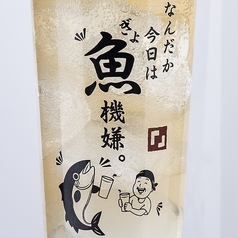 なんだか
今日は
魚
ぎょ
機嫌。